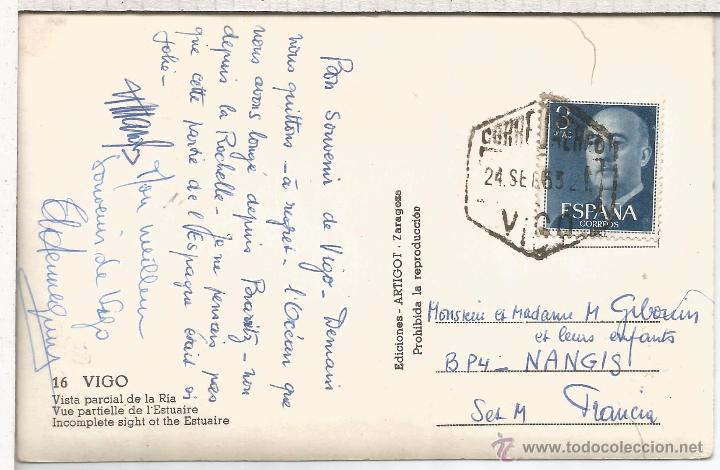 Bon souvenir de Vigo - Demain
nous quittons - à regret - l'Océan que
nous avons longé depuis Biarritz - non
depuis la Rochelle - Je ne pensais pas
que cette partie de l'Espagne était si
jolie -
Mon meilleur
souvenir de Vigo
16 VIGO
Vista parcial de la Ría
Vue partielle de l'Estuaire
Incomplete sight ot the Estuaire
Ediciones - ARTIGOT · Zaragoza
Prohibida la reproducción
CORREO AEREO
24. SEP 63
VIGO
3
PTAS
ESPAÑA
CORREOS
Monsieur et Madame M Gibouin
et leurs enfants
BP4 - NANGIS
Set M
Francia
© www.todocoleccion.net